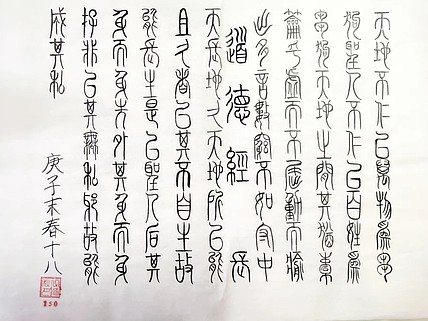 天地不仁以萬物爲芻
狗聖人不仁以百姓爲
芻狗天地之間其猶橐
籥乎虛而不屈動而愈
出多言數窮不如守中
道德經 長
天長地久天地所以能
且久者以其不自生故
能長生是以聖人后其
身而身先外其身而身
存非以其無私邪故能
成其私
庚子末春十八
150